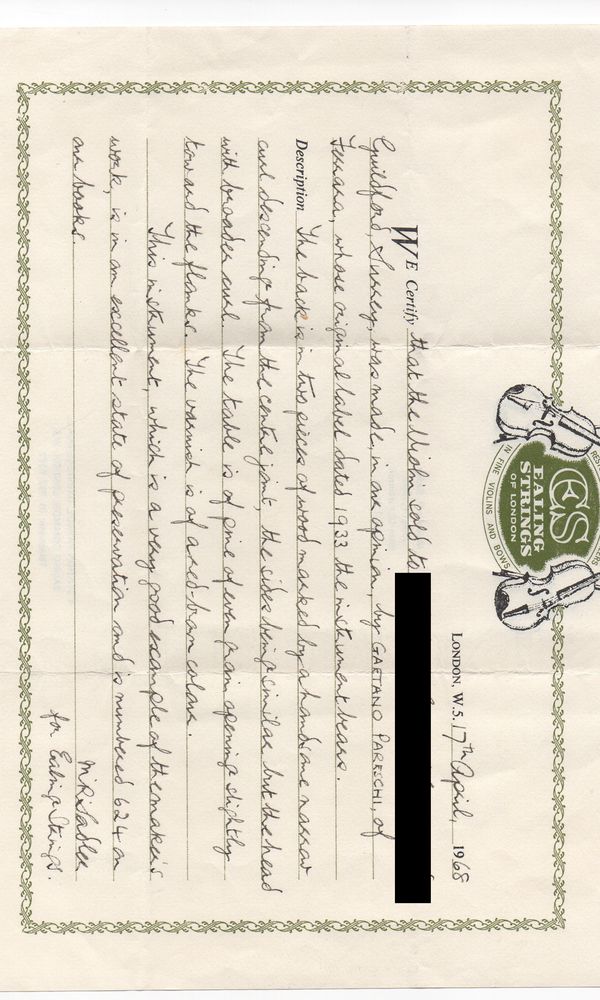 EALING
STRINGS
OF LONDON
IN FINE VIOLINS AND BOWS
LONDON, W.5. 17th April, 1968
WE Certify that the Violin sold to
Guildford, Surrey, was made, in our opinion, by GAETANO PARESCHI, of
Ferrara, whose original label dated 1933 the instrument bears.
Description The back is in two pieces of wood marked by a handsome narrow
curl descending from the central joint, the sides being similar but the head
with broader curl. The table is of pine of even grain opening slightly
toward the flanks. The varnish is of a red-brown colour.
This instrument, which is a very good example of the maker's
work, is in an excellent state of preservation and is numbered 624 on
our books.
M.R. Sadler
for Ealing Strings.